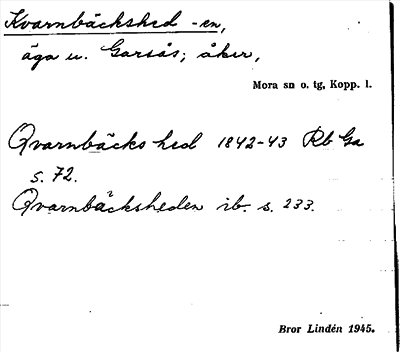 Kvarnbäckshed -en,
äga u. Garsås; åker,
Mora sn o. tg, Kopp. l.
Qvarnbäckshed 1842-43 Rb Ga
s. 72.
Qvarnbäcksheden ib. s. 233.
Bror Lindén 1945.